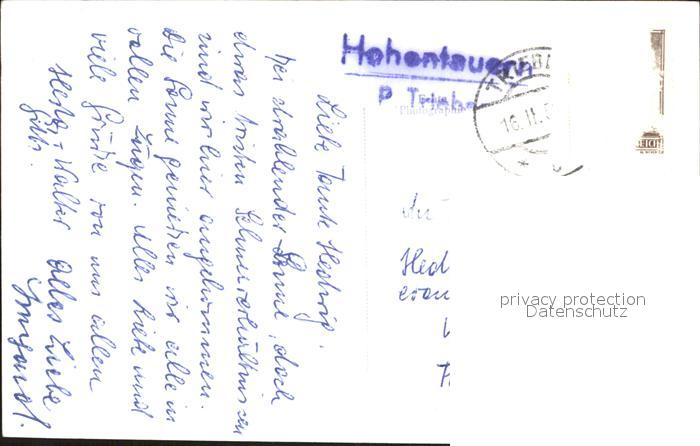 Hohentauern
P. Trieben
16.II.5
Liebe Tante Hedwig.
Bei strahlender Sonne, doch
etwas tristen Schneeverhältnissen
sind wir hier angekommen.
Die Sonne genießen wir alle in
vollen Zügen. Alles Liebe und
viele Grüße von uns allen
Herta, Walter
Alles Liebe
Irmgard.
An
Hed
privacy protection
Datenschutz